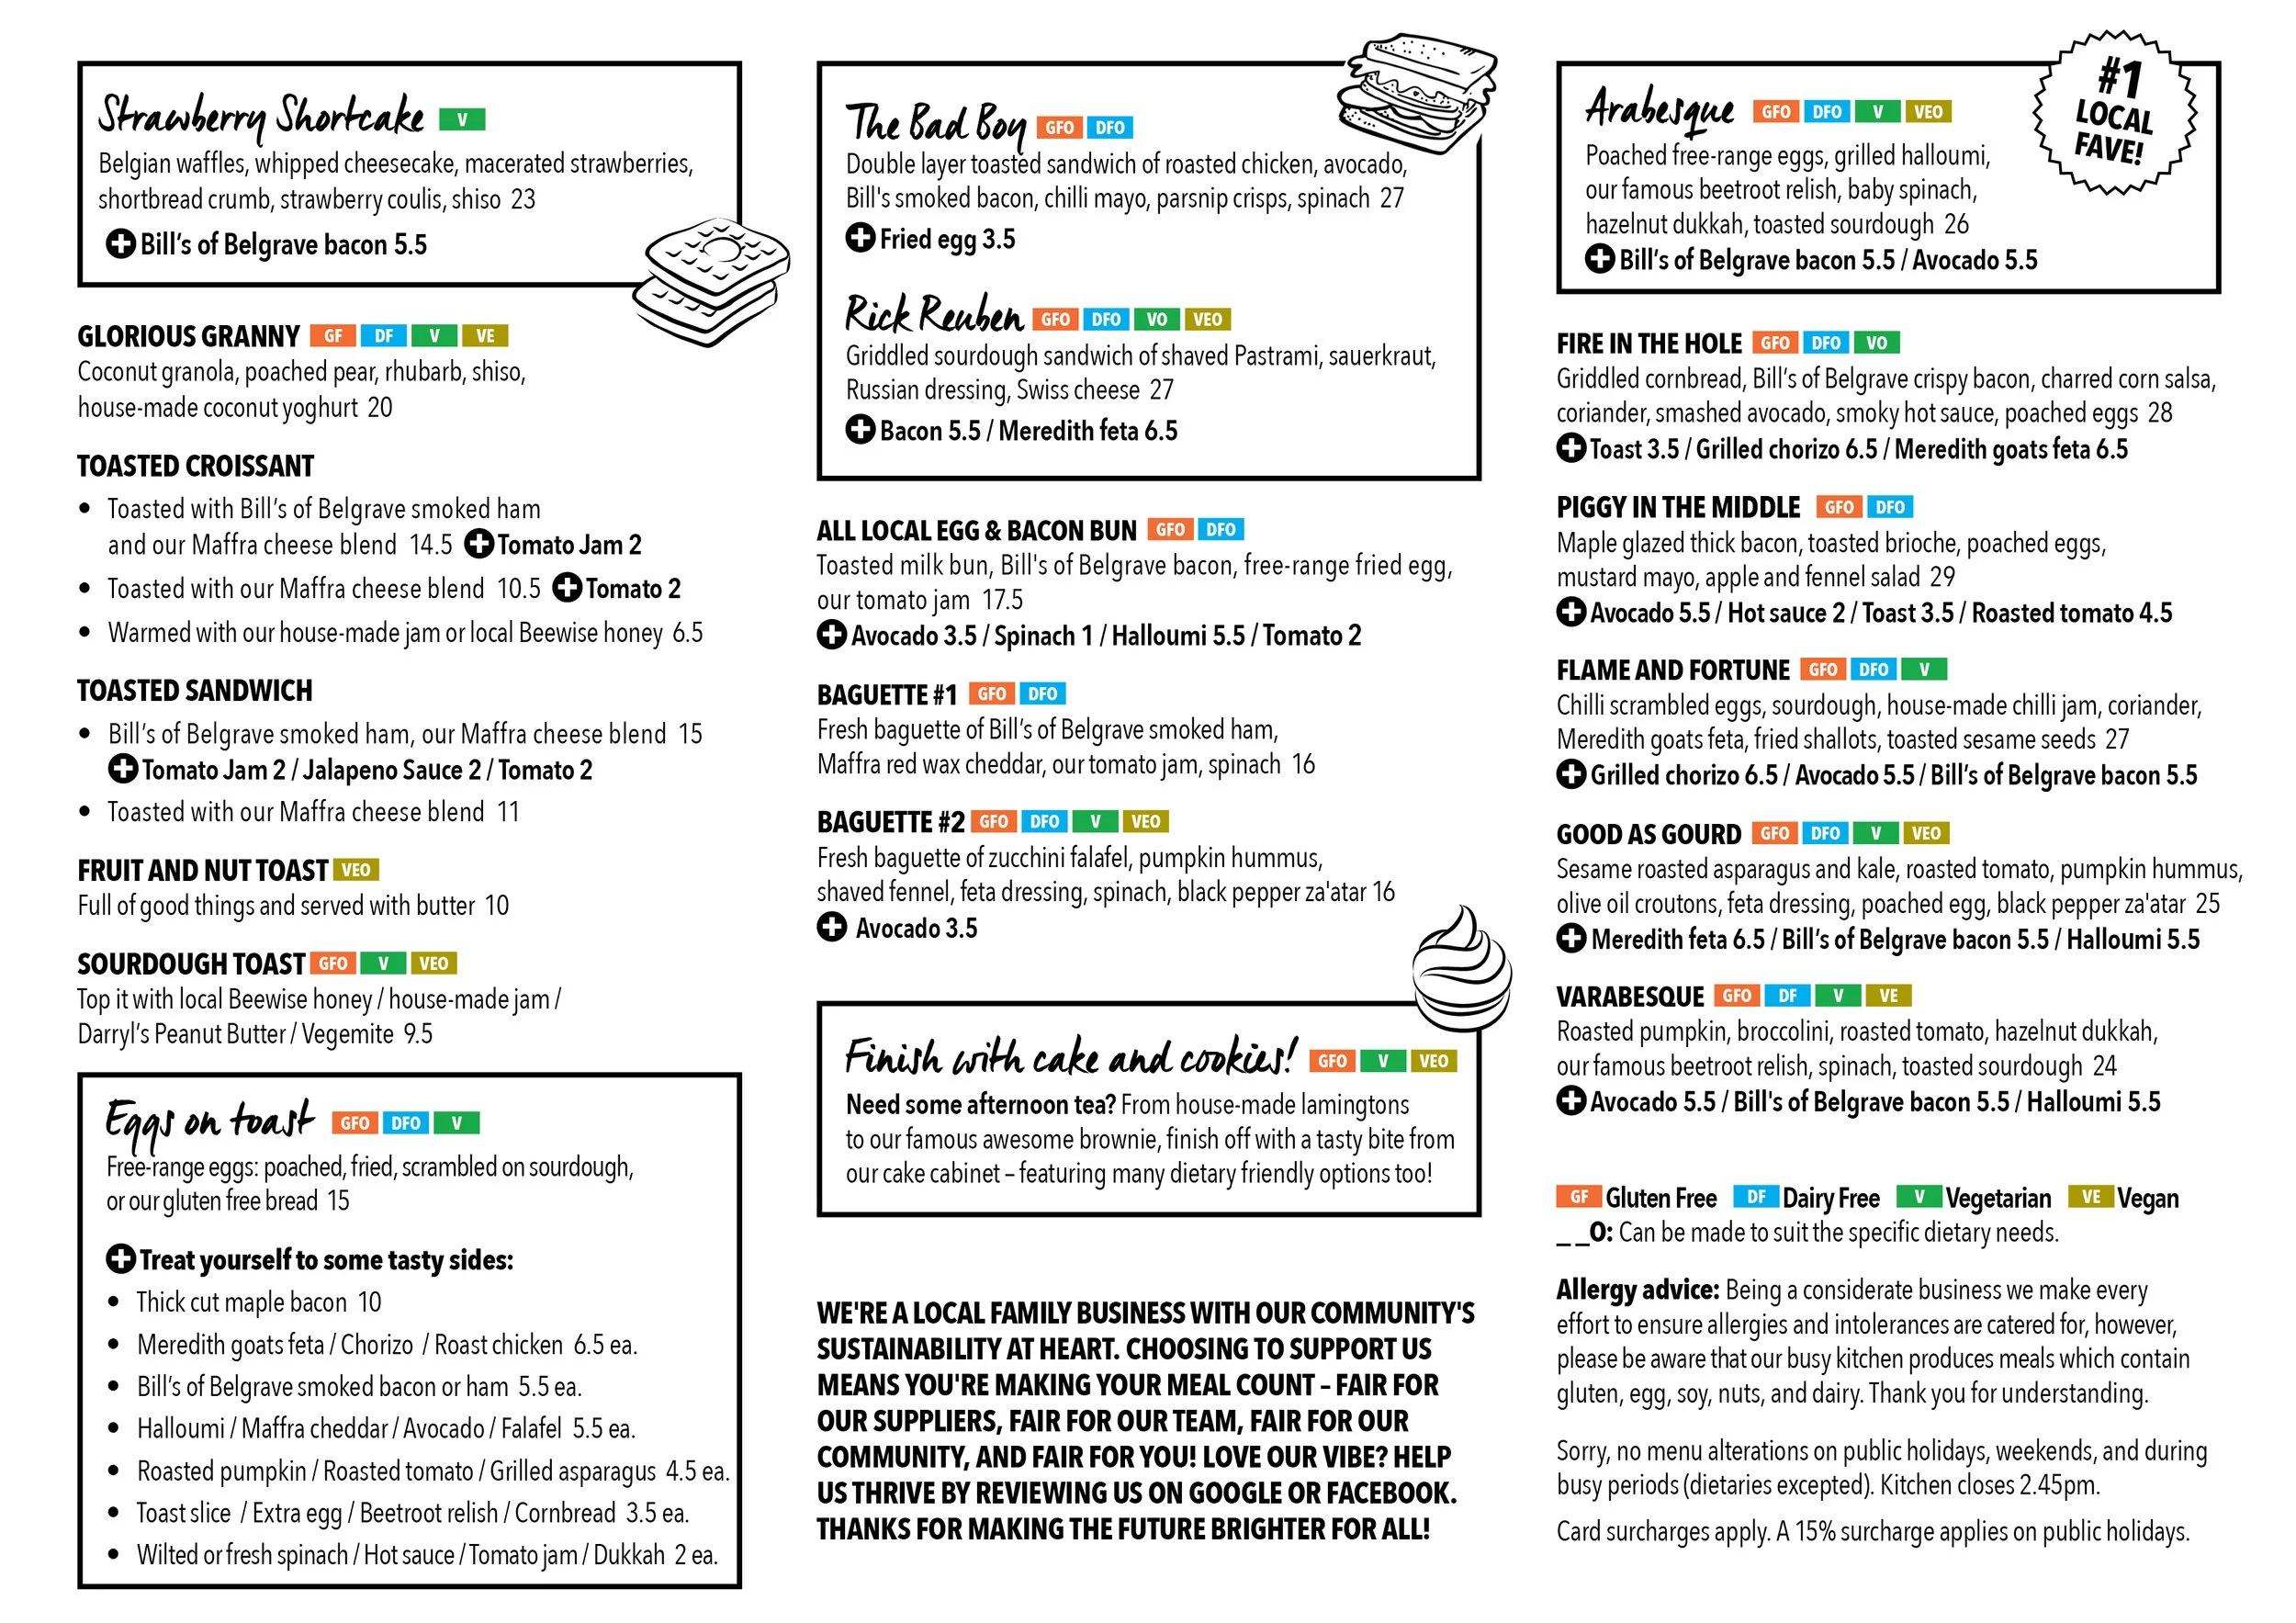 Strawberry Shortcake V
Belgian waffles, whipped cheesecake, macerated strawberries,
shortbread crumb, strawberry coulis, shiso 23
+ Bill’s of Belgrave bacon 5.5
GLORIOUS GRANNY GF DF V VE
Coconut granola, poached pear, rhubarb, shiso,
house-made coconut yoghurt 20
TOASTED CROISSANT
• Toasted with Bill’s of Belgrave smoked ham
and our Maffra cheese blend 14.5 + Tomato Jam 2
• Toasted with our Maffra cheese blend 10.5 + Tomato 2
• Warmed with our house-made jam or local Beewise honey 6.5
TOASTED SANDWICH
• Bill’s of Belgrave smoked ham, our Maffra cheese blend 15
+ Tomato Jam 2 / Jalapeno Sauce 2 / Tomato 2
• Toasted with our Maffra cheese blend 11
FRUIT AND NUT TOAST VEO
Full of good things and served with butter 10
SOURDOUGH TOAST GFO V VEO
Top it with local Beewise honey / house-made jam /
Darryl’s Peanut Butter / Vegemite 9.5
Eggs on toast GFO DFO V
Free-range eggs: poached, fried, scrambled on sourdough,
or our gluten free bread 15
+ Treat yourself to some tasty sides:
• Thick cut maple bacon 10
• Meredith goats feta / Chorizo / Roast chicken 6.5 ea.
• Bill’s of Belgrave smoked bacon or ham 5.5 ea.
• Halloumi / Maffra cheddar / Avocado / Falafel 5.5 ea.
• Roasted pumpkin / Roasted tomato / Grilled asparagus 4.5 ea.
• Toast slice / Extra egg / Beetroot relish / Cornbread 3.5 ea.
• Wilted or fresh spinach / Hot sauce / Tomato jam / Dukkah 2 ea.
The Bad Boy GFO DFO
Double layer toasted sandwich of roasted chicken, avocado,
Bill's smoked bacon, chilli mayo, parsnip crisps, spinach 27
+ Fried egg 3.5
Rick Reuben GFO DFO VO VEO
Griddled sourdough sandwich of shaved Pastrami, sauerkraut,
Russian dressing, Swiss cheese 27
+ Bacon 5.5 / Meredith feta 6.5
ALL LOCAL EGG & BACON BUN GFO DFO
Toasted milk bun, Bill's of Belgrave bacon, free-range fried egg,
our tomato jam 17.5
+ Avocado 3.5 / Spinach 1 / Halloumi 5.5 / Tomato 2
BAGUETTE #1 GFO DFO
Fresh baguette of Bill’s of Belgrave smoked ham,
Maffra red wax cheddar, our tomato jam, spinach 16
BAGUETTE #2 GFO DFO V VEO
Fresh baguette of zucchini falafel, pumpkin hummus,
shaved fennel, feta dressing, spinach, black pepper za'atar 16
+ Avocado 3.5
Finish with cake and cookies! GFO V VEO
Need some afternoon tea? From house-made lamingtons
to our famous awesome brownie, finish off with a tasty bite from
our cake cabinet – featuring many dietary friendly options too!
WE'RE A LOCAL FAMILY BUSINESS WITH OUR COMMUNITY'S
SUSTAINABILITY AT HEART. CHOOSING TO SUPPORT US
MEANS YOU'RE MAKING YOUR MEAL COUNT – FAIR FOR
OUR SUPPLIERS, FAIR FOR OUR TEAM, FAIR FOR OUR
COMMUNITY, AND FAIR FOR YOU! LOVE OUR VIBE? HELP
US THRIVE BY REVIEWING US ON GOOGLE OR FACEBOOK.
THANKS FOR MAKING THE FUTURE BRIGHTER FOR ALL!
#1
LOCAL
FAVE!
Arabesque GFO DFO V VEO
Poached free-range eggs, grilled halloumi,
our famous beetroot relish, baby spinach,
hazelnut dukkah, toasted sourdough 26
+ Bill’s of Belgrave bacon 5.5 / Avocado 5.5
FIRE IN THE HOLE GFO DFO VO
Griddled cornbread, Bill’s of Belgrave crispy bacon, charred corn salsa,
coriander, smashed avocado, smoky hot sauce, poached eggs 28
+ Toast 3.5 / Grilled chorizo 6.5 / Meredith goats feta 6.5
PIGGY IN THE MIDDLE GFO DFO
Maple glazed thick bacon, toasted brioche, poached eggs,
mustard mayo, apple and fennel salad 29
+ Avocado 5.5 / Hot sauce 2 / Toast 3.5 / Roasted tomato 4.5
FLAME AND FORTUNE GFO DFO V
Chilli scrambled eggs, sourdough, house-made chilli jam, coriander,
Meredith goats feta, fried shallots, toasted sesame seeds 27
+ Grilled chorizo 6.5 / Avocado 5.5 / Bill’s of Belgrave bacon 5.5
GOOD AS GOURD GFO DFO V VEO
Sesame roasted asparagus and kale, roasted tomato, pumpkin hummus,
olive oil croutons, feta dressing, poached egg, black pepper za'atar 25
+ Meredith feta 6.5 / Bill’s of Belgrave bacon 5.5 / Halloumi 5.5
VARABESQUE GFO DF V VE
Roasted pumpkin, broccolini, roasted tomato, hazelnut dukkah,
our famous beetroot relish, spinach, toasted sourdough 24
+ Avocado 5.5 / Bill's of Belgrave bacon 5.5 / Halloumi 5.5
GF Gluten Free DF Dairy Free V Vegetarian VE Vegan
_ _O: Can be made to suit the specific dietary needs.
Allergy advice: Being a considerate business we make every
effort to ensure allergies and intolerances are catered for, however,
please be aware that our busy kitchen produces meals which contain
gluten, egg, soy, nuts, and dairy. Thank you for understanding.
Sorry, no menu alterations on public holidays, weekends, and during
busy periods (dietaries excepted). Kitchen closes 2.45pm.
Card surcharges apply. A 15% surcharge applies on public holidays.